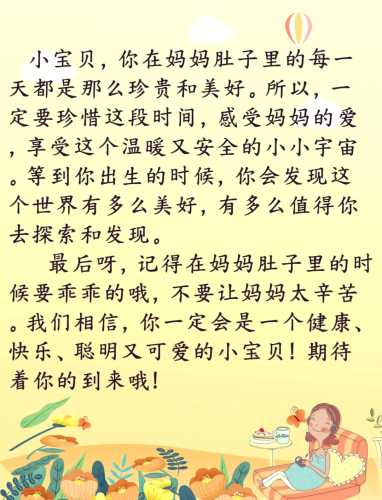 小宝贝，你在妈妈肚子里的每一
天都是那么珍贵和美好。所以，一
定要珍惜这段时间，感受妈妈的爱
，享受这个温暖又安全的小小宇宙
。等到你出生的时候，你会发现这
个世界有多么美好，有多么值得你
去探索和发现。
最后呀，记得在妈妈肚子里的时
候要乖乖的哦，不要让妈妈太辛苦
。我们相信，你一定会是一个健康、
快乐、聪明又可爱的小宝贝！期待
着你的到来哦！